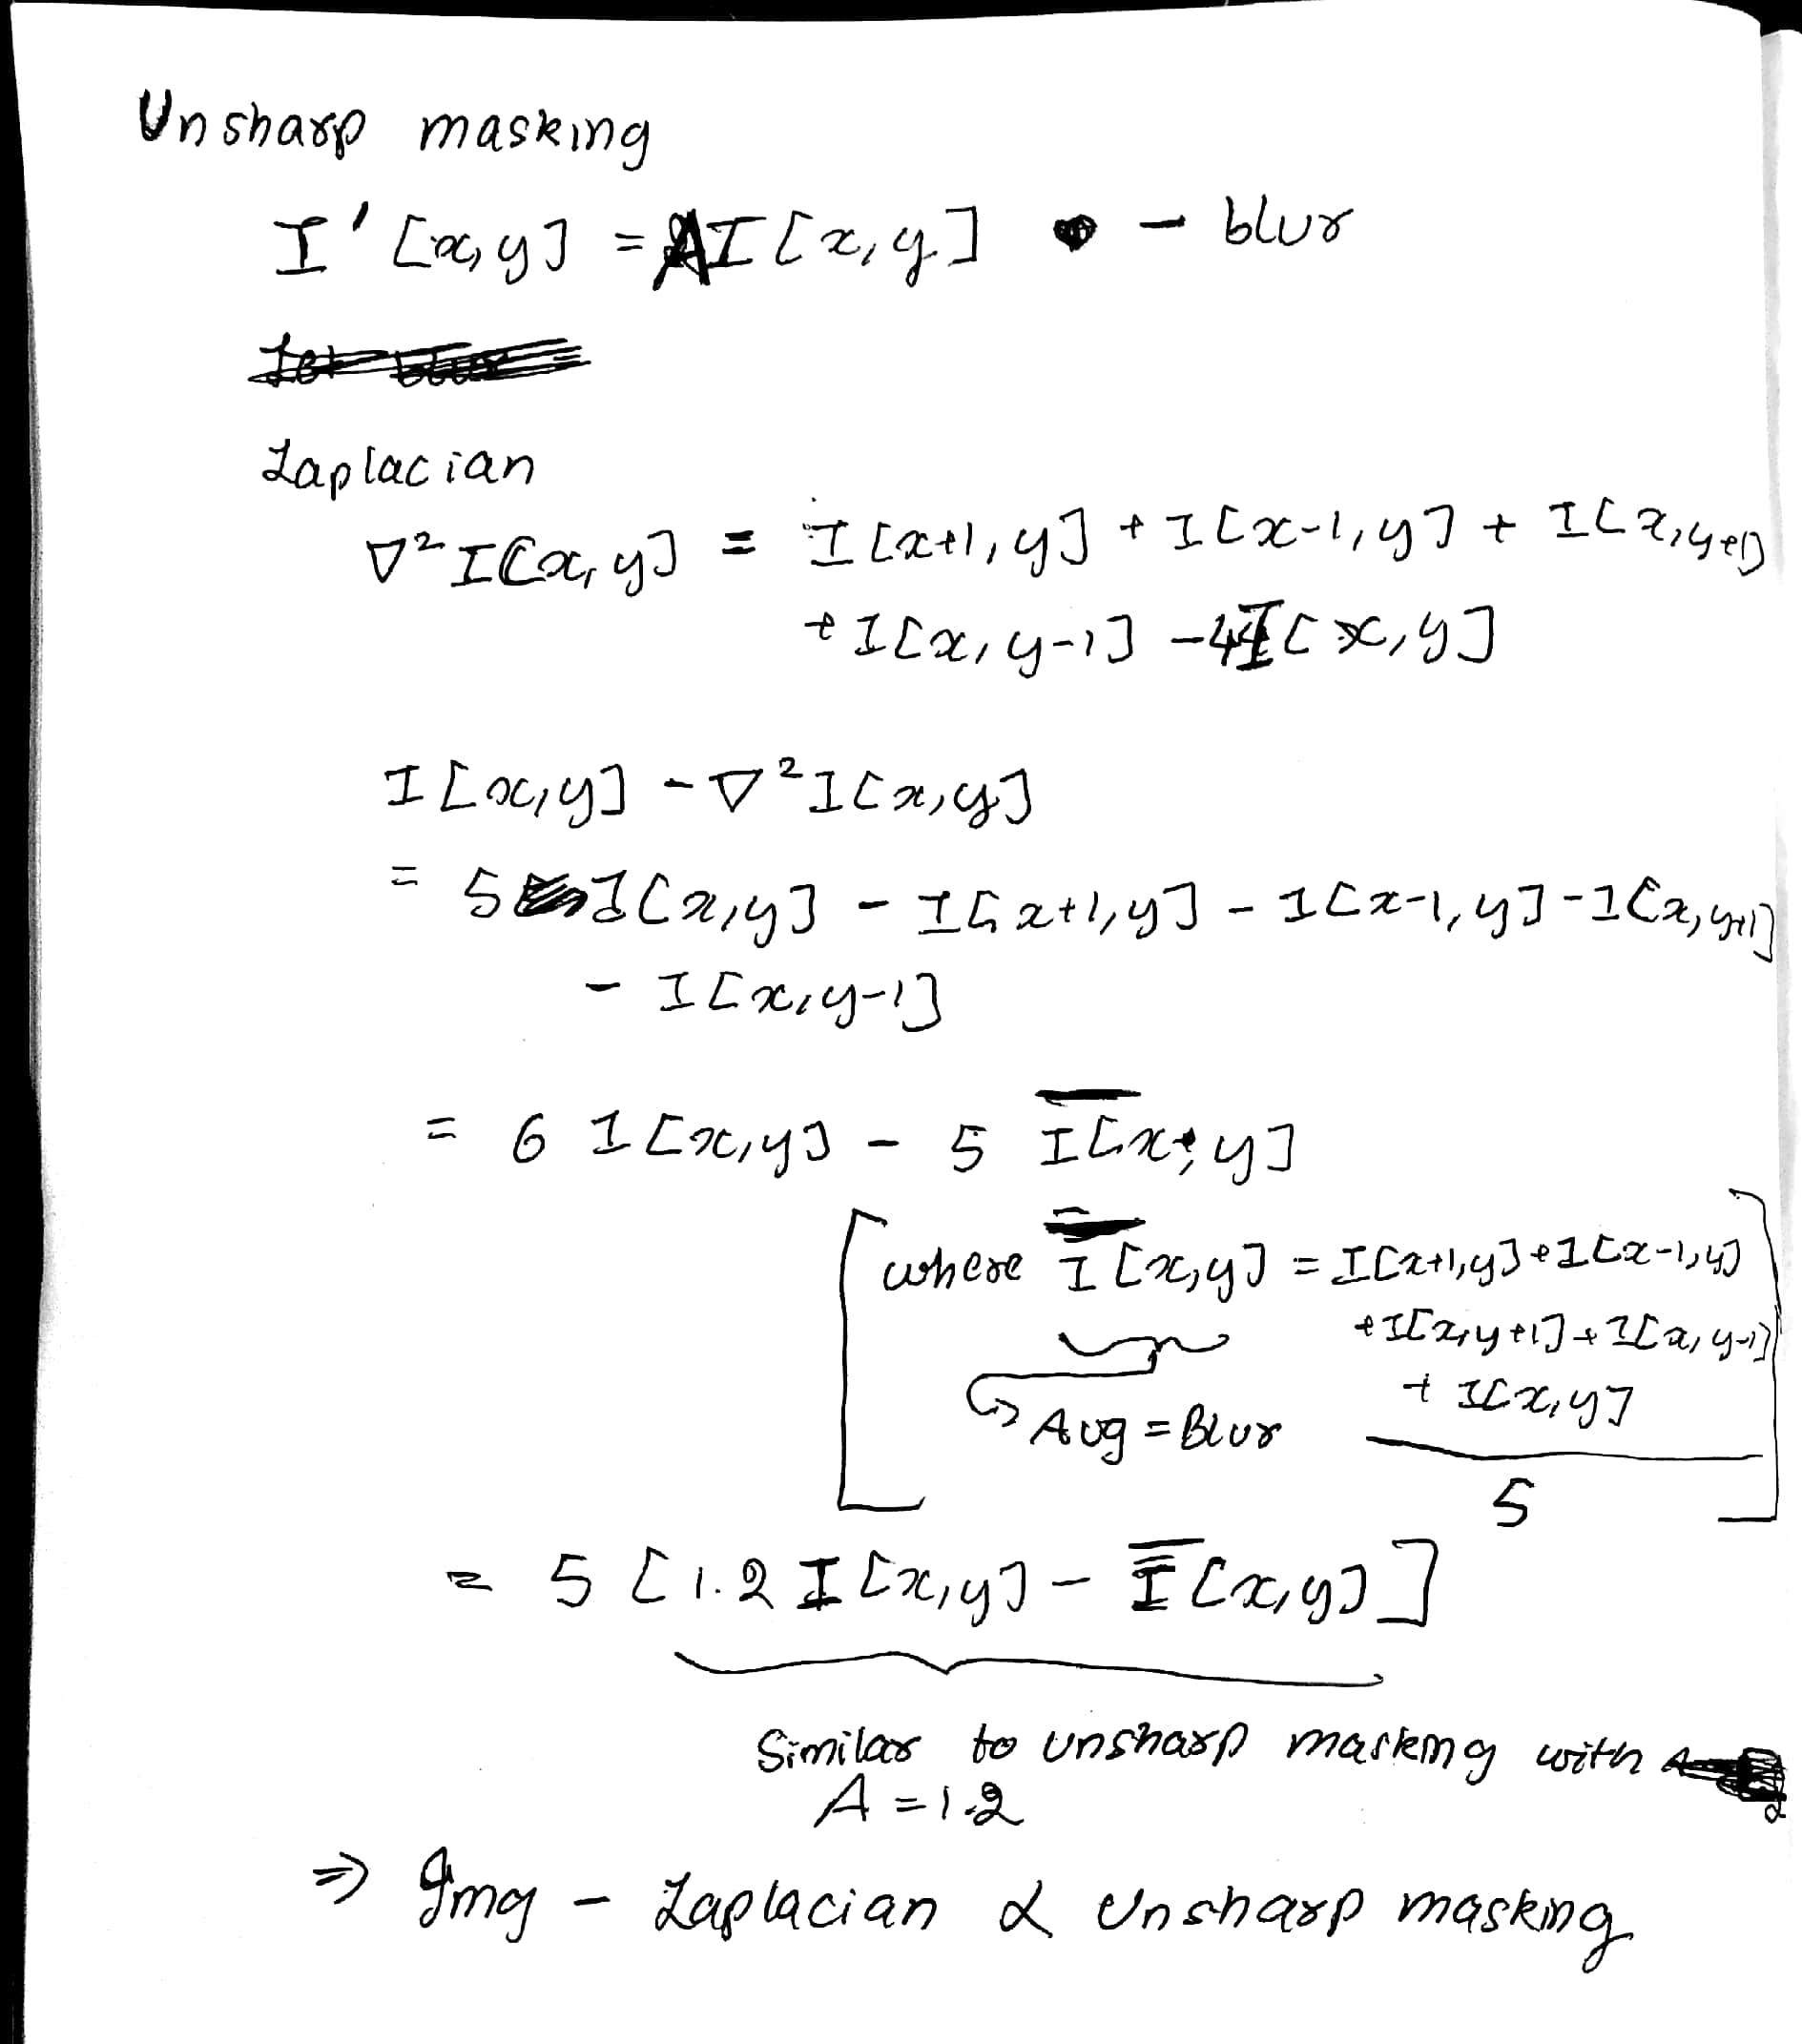 Unsharp masking
I'[x,y] = AI[x,y] - blur
Laplacian
∇²I[x,y] = I[x+1,y] + I[x-1,y] + I[x,y+1]
+ I[x,y-1] - 4I[x,y]
I[x,y] - ∇²I[x,y]
= 5 I[x,y] - I[x+1,y] - I[x-1,y] - I[x,y+1]
- I[x,y-1]
= 6 I[x,y] - 5 Ī[x,y]
where Ī[x,y] = I[x+1,y] + I[x-1,y]
+ I[x,y+1] + I[x,y-1]
+ I[x,y]
↳ Avg = Blur
5
= 5 [1.2 I[x,y] - Ī[x,y]]
Similar to unsharp masking with
A = 1.2
⇒ Img - Laplacian α Unsharp masking